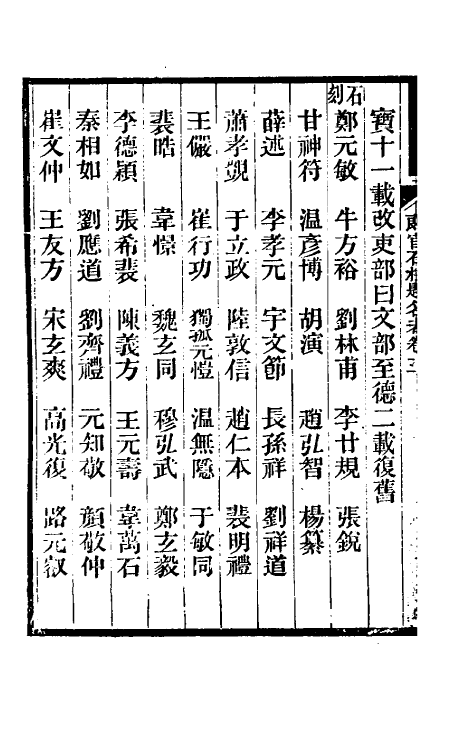 寶十一載改吏部曰文部至德二載復舊
石刻 鄭元敏 牛方裕 劉林甫 李廿規 張銳
甘神符 温彥博 胡演 趙弘智 楊纂
薛述 李孝元 宇文節 長孫祥 劉祥道
蕭孝覬 于立政 陸敦信 趙仁本 裴明禮
王儼 崔行功 獨孤元愷 温無隱 于敏同
裴皓 韋憬 魏玄同 穆弘武 鄭玄毅
李德穎 張希裴 陳義方 王元壽 韋萬石
秦相如 劉應道 劉齊禮 元知敬 顏敬仲
崔文仲 王友方 宋玄爽 高光復 路元叡